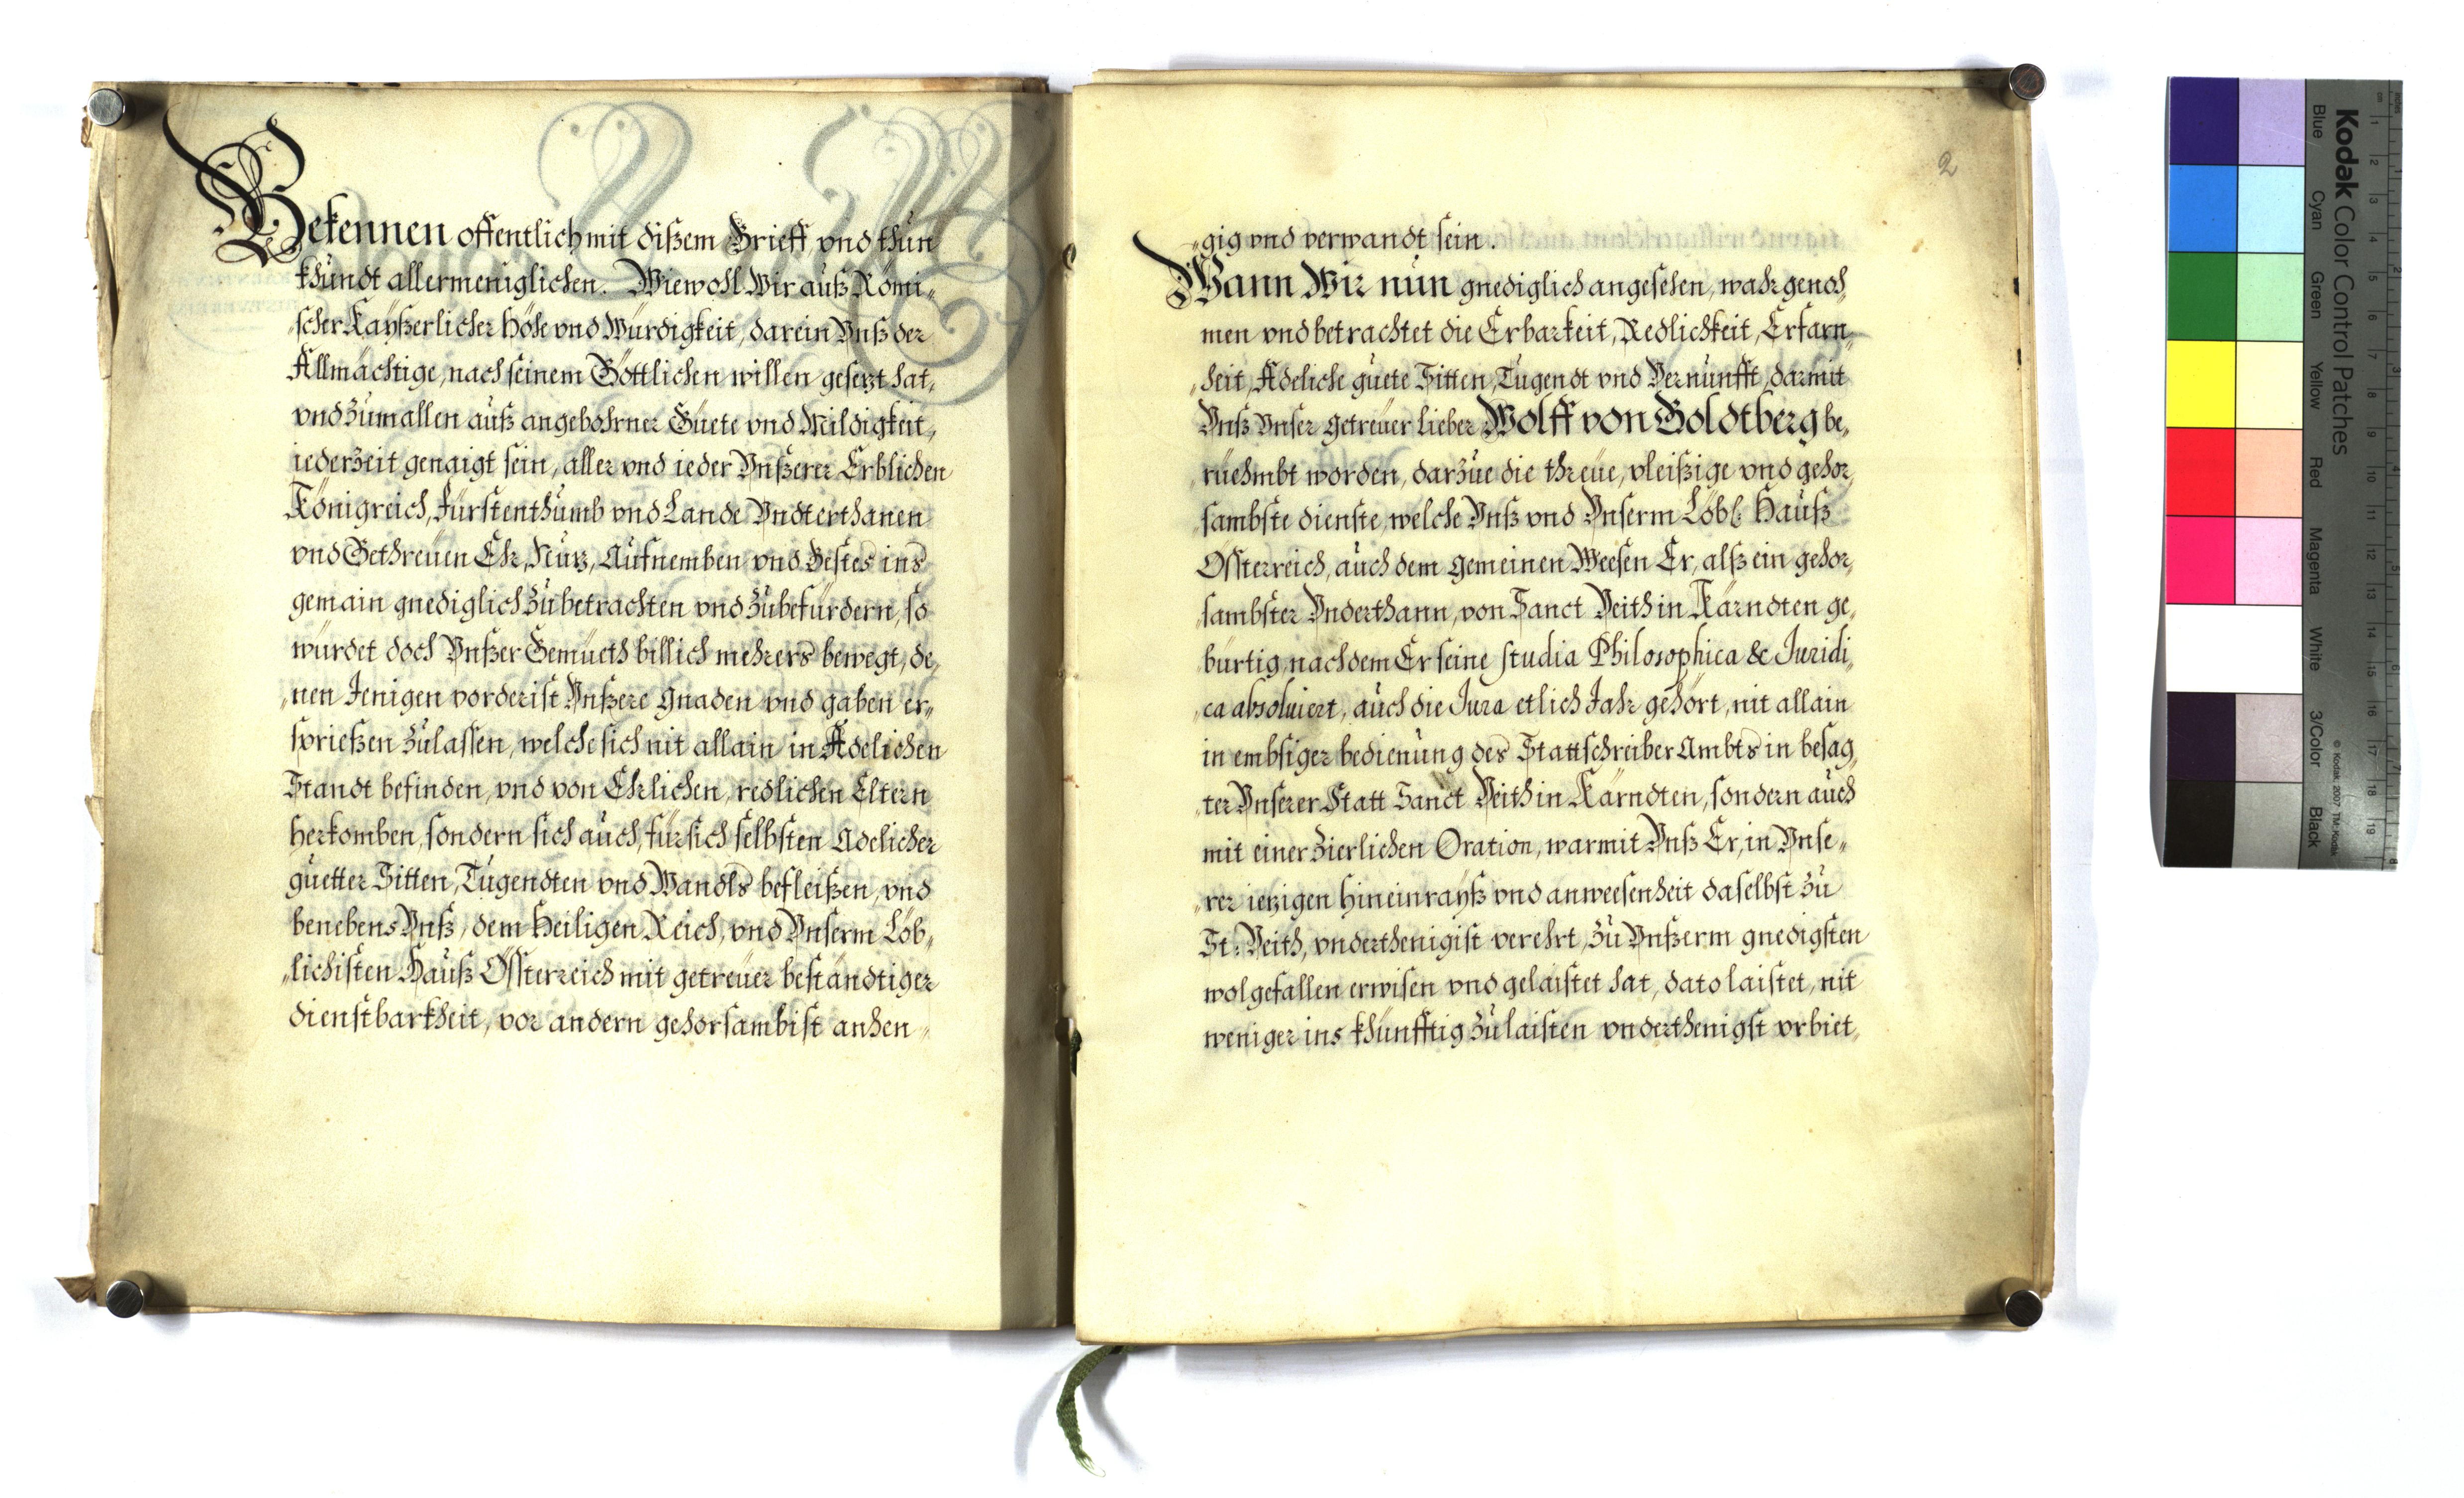 Bekennen offentlich mit dißem Brieff, vnd thun
khundt allermeniglichen. Wiewohl Wir auß Römi„
„scher Kayßerlicher Höhe vnd Würdigkeit, darein Vnß der
Allmächtige, nach seinem Göttlichen willen gesezt hat,
vnd zumallen auß angebohrner Güete vnd Mildigkeit,
iederzeit genaigt sein, aller vnd ieder Vnßerer Erblichen
Königreich, Fürstenthumb vnd Lande Vndterthanen
vnd Gethreuen Ehr, Nuz, Aufnemben vnd Bestes ins
gemain gnediglich zubetrachten vnd zubefürdern, so
würdet doch Vnßer Gemüeth billich mehrers bewegt, de„
„nen Jenigen vorderist Vnßere Gnaden vnd gaben er„
sprießen zulassen, welche sich nit allain in Adelichen
Standt befinden, vnd von Ehrlichen, redlichen Eltern
herkomben, sondern sich auch, für sich selbsten Adelicher
guetter Sitten, Tugendten vnd Wandls befleißen, vnd
benebens Vnß, dem Heiligen Reich, vnd Vnserm Löb„
„lichisten Hauß Össterreich mit getreuer beständtiger
dienstbarkheit, vor andern gehorsambist anhen„
2
„gig vnd verwandt sein.
Wann Wir nun gnediglich angesehen, wahrgenoh„
men vnd betrachtet die Erbarkeit, Redlichkeit, Erfarn„
„heit, Adeliche guete Sitten, Tugendt vnd Vernunfft, darmit
Vnß Vnser getreuer lieber Wolff von Goldtberg be„
„rüehmbt worden, darzue die threue, vleißige vnd gehor„
„sambste dienste, welche Vnß vnd Vnserm Löbl: Hauß
Össterreich, auch dem gemeinen Weesen Er, alß ein gehor„
„sambster Vnderthann, von Sanct Veith in Kärndten ge„
bürtig, nachdem Er seine studia Philosophica & Juridi„
„ca absoluiert, auch die Jura etlich Jahr gehört, nit allain
in embsiger bedienung des Stattschreiber Ambts in besag„
„ter Vnserer Statt Sanct Veith in Kärndten, sondern auch
mit einer zierlichen Oration, warmit Vnß Er, in Vnse„
„rer iezigen hineinrayß vnd anweesenheit daselbst zu
St: Veith, vnderthenigist verehrt, zu Vnßerm gnedigsten
wolgefallen erwisen vnd gelaistet hat, dato laistet, nit
weniger ins khünfftig zulaisten vnderthenigst vrbiet„
Kodak Color Control Patches
Blue
Cyan
Green
Yellow
Red
Magenta
White
3/Color
Black
© Kodak, 2007 TM: Kodak